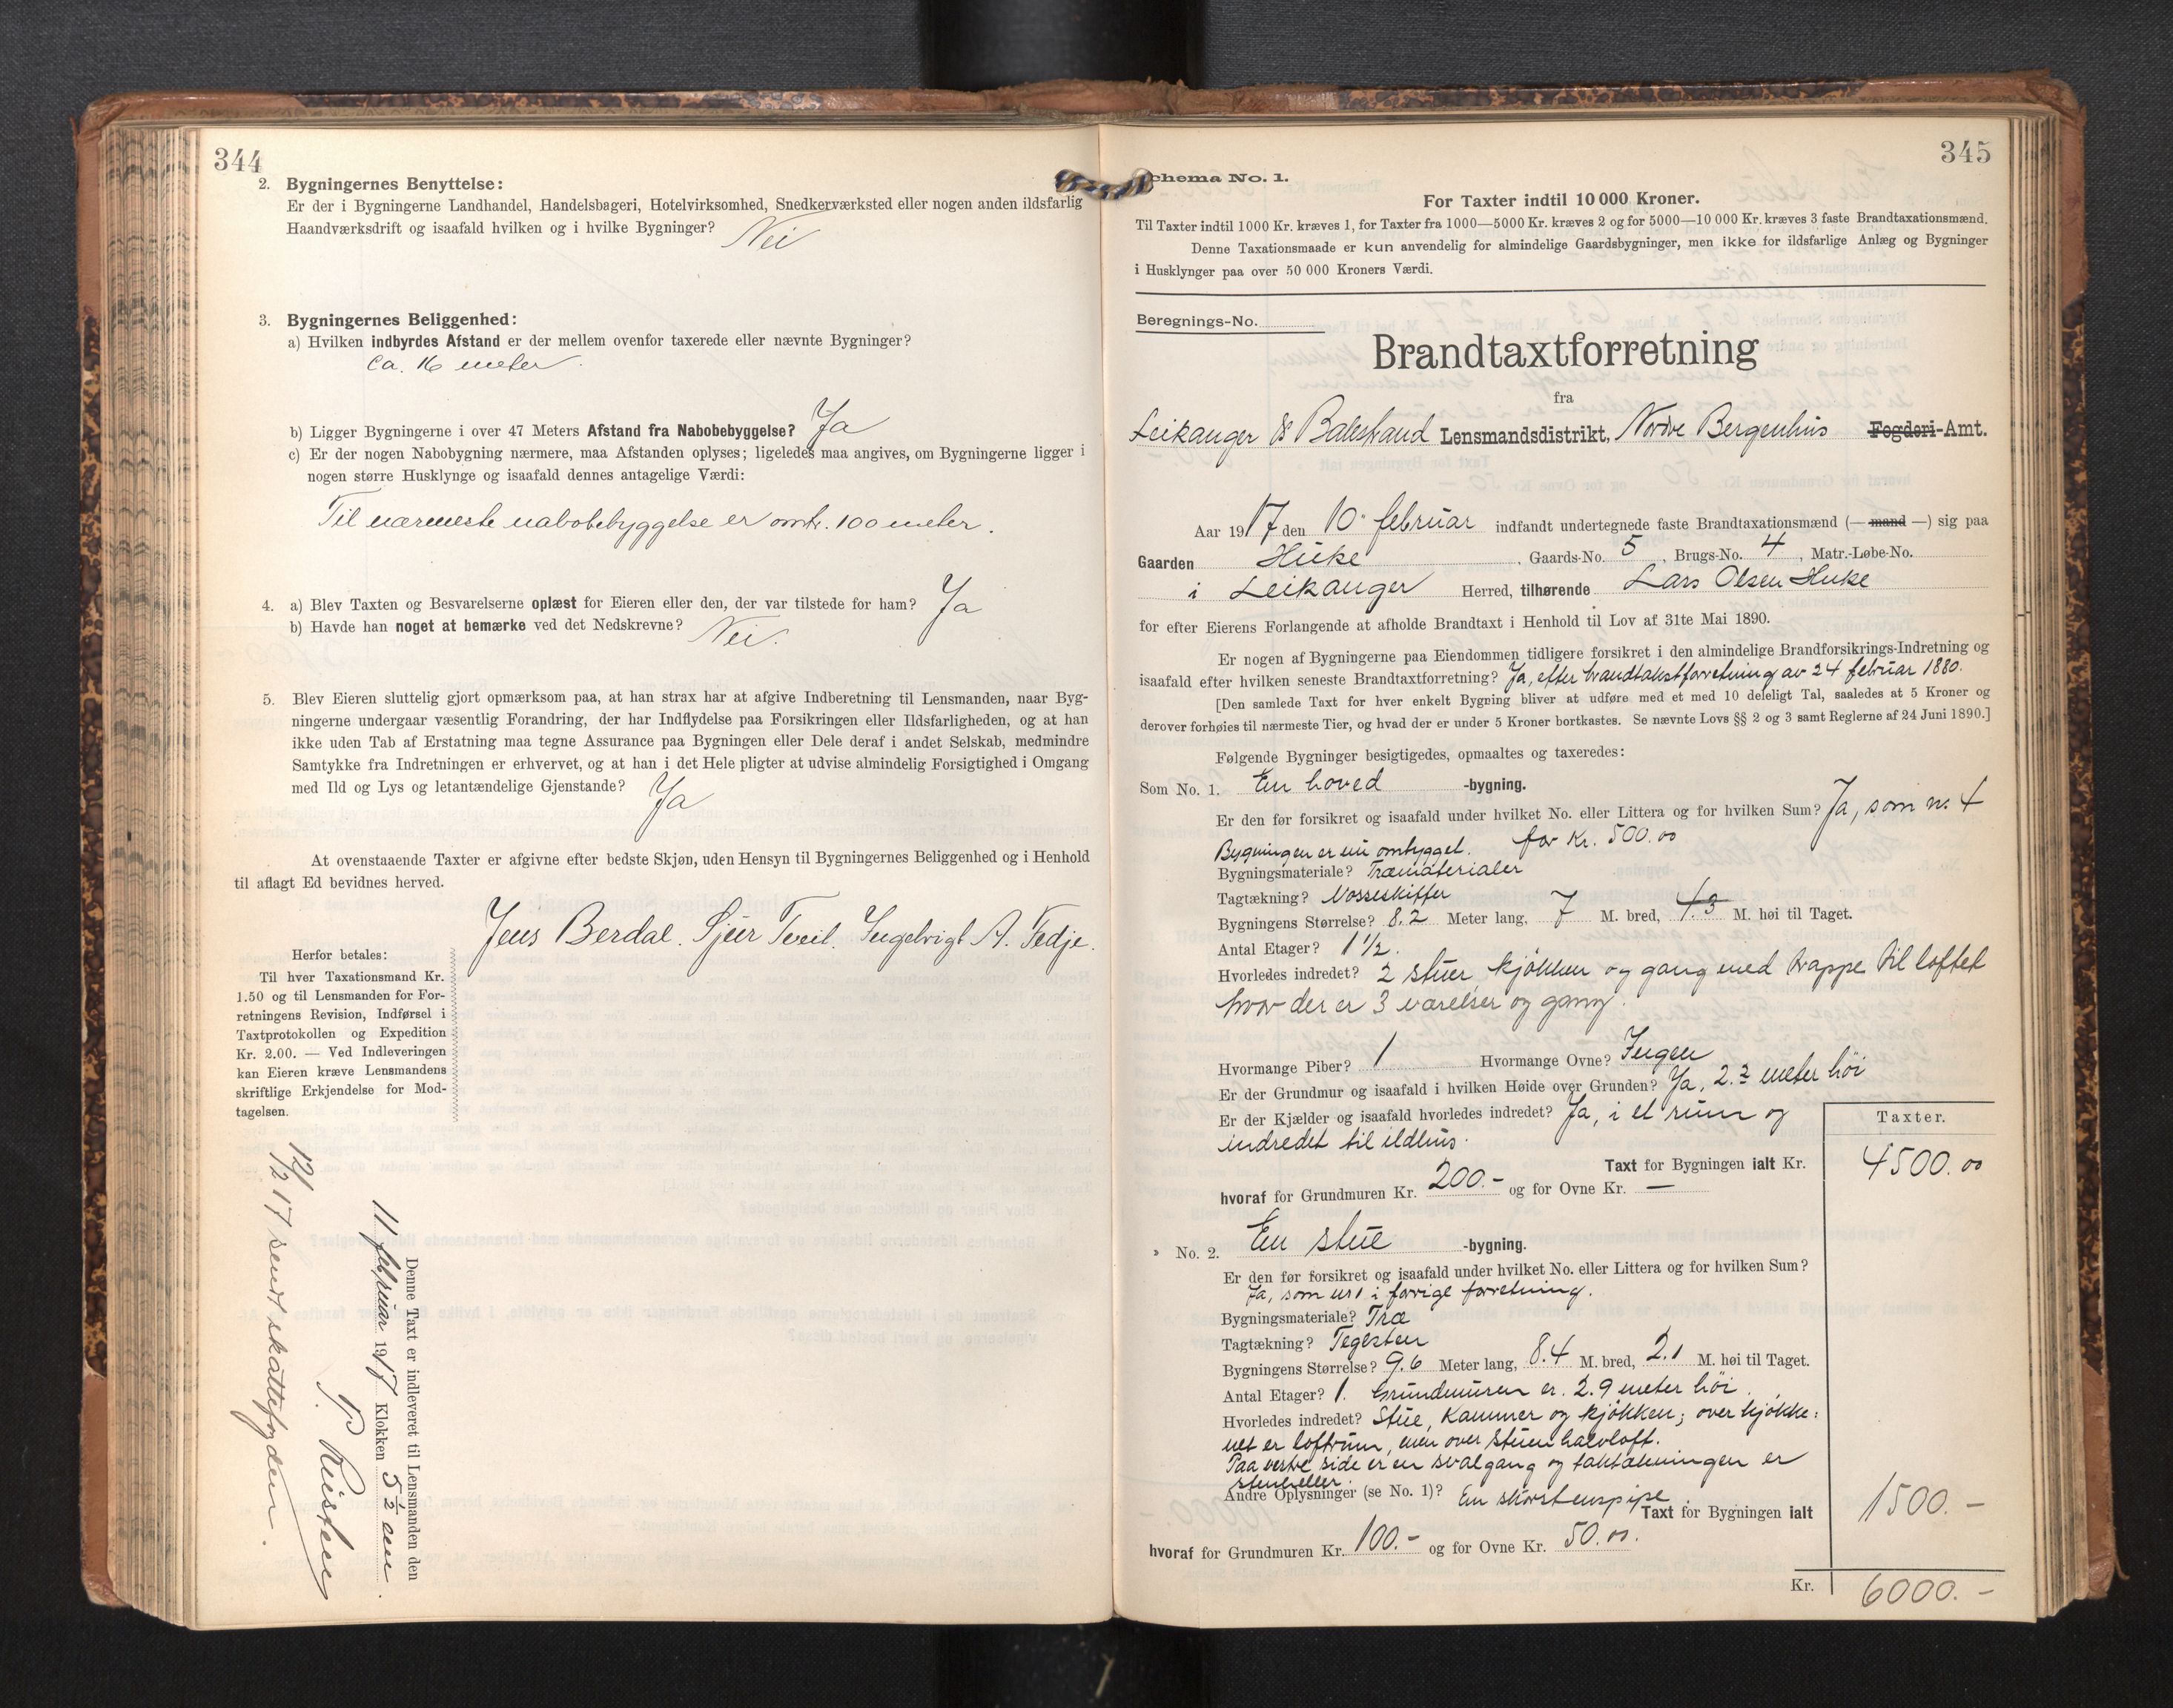 344
2. Bygningernes Benyttelse:
Er der i Bygningerne Landhandel, Handelsbageri, Hotelvirksomhed, Snedkerværksted eller nogen anden ildsfarlig
Haandværksdrift og isaafald hvilken og i hvilke Bygninger? Nei
3. Bygningernes Beliggenhed:
a) Hvilken indbyrdes Afstand er der mellem ovenfor taxerede eller nævnte Bygninger?
ca. 16 meter.
b) Ligger Bygningerne i over 47 Meters Afstand fra Nabobebyggelse? Ja
c) Er der nogen Nabobygning nærmere, maa Afstanden oplyses; ligeledes maa angives, om Bygningerne ligger i
nogen større Husklynge og isaafald dennes antagelige Værdi:
Til nærmeste nabobebyggelse er omtr. 100 meter.
4. a) Blev Taxten og Besvarelserne oplæst for Eieren eller den, der var tilstede for ham? Ja
b) Havde han noget at bemærke ved det Nedskrevne? Nei.
5. Blev Eieren sluttelig gjort opmærksom paa, at han strax har at afgive Indberetning til Lensmanden, naar Byg-
ningerne undergaar væsentlig Forandring, der har Indflydelse paa Forsikringen eller Ildsfarligheden, og at han
ikke uden Tab af Erstatning maa tegne Assurance paa Bygningen eller Dele deraf i andet Selskab, medmindre
Samtykke fra Indretningen er erhvervet, og at han i det Hele pligter at udvise almindelig Forsigtighed i Omgang
med Ild og Lys og letantændelige Gjenstande? Ja
At ovenstaaende Taxter er afgivne efter bedste Skjøn, uden Hensyn til Bygningernes Beliggenhed og i Henhold
til aflagt Ed bevidnes herved.
Jens Berdal. Sjur Tveit. Ingelvigt A. Fedje.
Herfor betales:
Til hver Taxationsmand Kr.
1.50 og til Lensmanden for For-
retningens Revision, Indførsel i
Taxtprotokollen og Expedition
Kr. 2.00. — Ved Indleveringen
kan Eieren kræve Lensmandens
skriftlige Erkjendelse for Mod-
tagelsen.
Denne Taxt er indleveret til Lensmanden den
11 februar 1917 Klokken 5 ½ em.
P. Reisten
12/2 17 sendt skattefogden.
345
Schema No. 1.
For Taxter indtil 10 000 Kroner.
Til Taxter indtil 1000 Kr. kræves 1, for Taxter fra 1000—5000 Kr. kræves 2 og for 5000—10 000 Kr. kræves 3 faste Brandtaxationsmænd.
Denne Taxationsmaade er kun anvendelig for almindelige Gaardsbygninger, men ikke for ildsfarlige Anlæg og Bygninger
i Husklynger paa over 50 000 Kroners Værdi.
Beregnings-No.
Brandtaxtforretning
fra
Leikanger & Balestrand Lensmandsdistrikt, Nordre Bergenhus Fogderi-Amt.
Aar 1917 den 10. februar indfandt undertegnede faste Brandtaxationsmænd (— mand —) sig paa
Gaarden Huke, Gaards-No. 5, Brugs-No. 4, Matr.-Løbe-No.
i Leikanger Herred, tilhørende Lars Olsen Huke
for efter Eierens Forlangende at afholde Brandtaxt i Henhold til Lov af 31te Mai 1890.
Er nogen af Bygningerne paa Eiendommen tidligere forsikret i den almindelige Brandforsikrings-Indretning og
isaafald efter hvilken seneste Brandtaxtforretning? Ja, efter brandtakstforretning av 24 februar 1880.
[Den samlede Taxt for hver enkelt Bygning bliver at udføre med et med 10 deleligt Tal, saaledes at 5 Kroner og
derover forhøies til nærmeste Tier, og hvad der er under 5 Kroner bortkastes. Se nævnte Lovs §§ 2 og 3 samt Reglerne af 24 Juni 1890.]
Følgende Bygninger besigtigedes, opmaaltes og taxeredes:
Som No. 1. En hoved -bygning.
Er den før forsikret og isaafald under hvilket No. eller Littera og for hvilken Sum? Ja, som nr. 4
Bygningen er nu ombygget. for Kr. 500.00
Bygningsmateriale? Træmaterialer
Tagtækning? Vosseskiffer
Bygningens Størrelse? 8.2 Meter lang, 7 M. bred, 4.3 M. høi til Taget.
Antal Etager? 1 1/2.
Hvorledes indredet? 2 stuer kjøkken og gang med trappe til loftet
hvor der er 3 værelser og gang.
Hvormange Piber? 1 Hvormange Ovne? Ingen
Er der Grundmur og isaafald i hvilken Høide over Grunden? Ja, 2.2 meter høi
Er der Kjælder og isaafald hvorledes indredet? Ja, i et rum og
indredet til ildhus.
Taxter.
Taxt for Bygningen ialt Kr. 4500.00
hvoraf for Grundmuren Kr. 200.- og for Ovne Kr. —
» No. 2. En stue -bygning.
Er den før forsikret og isaafald under hvilket No. eller Littera og for hvilken Sum?
Ja, som nr 1 i forrige forretning.
Bygningsmateriale? Træ
Tagtækning? Teglsten
Bygningens Størrelse? 9.6 Meter lang, 8.4 M. bred, 2.1 M. høi til Taget.
Antal Etager? 1. Grundmuren er 2.9 meter høi.
Hvorledes indredet? Stue, Kammer og kjøkken; over kjøkke:
net er loftrum, men over stuen halvloft.
Paa vestre side er en svalgang og taktækningen er
stenheller.
Andre Oplysninger (se No. 1)? En skorstenspipe
Taxt for Bygningen ialt 1500.-
hvoraf for Grundmuren Kr. 100.- og for Ovne Kr. 50.00.
Kr. 6000.-